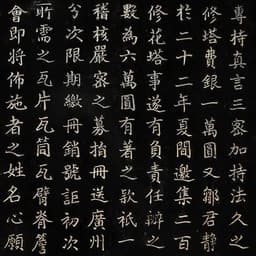 專持真言三密加持法久之
修塔費銀一萬圓又鄒君靜
於二十二年夏間邀集二百
修花塔事遂有負責任辦之
數為六萬圓有著之款祇一
稽核嚴密之募捐冊送廣州
分次限期繳冊銷號詎初次
所需之瓦片瓦筒瓦臂脊簷
會即將佈施者之姓名心願